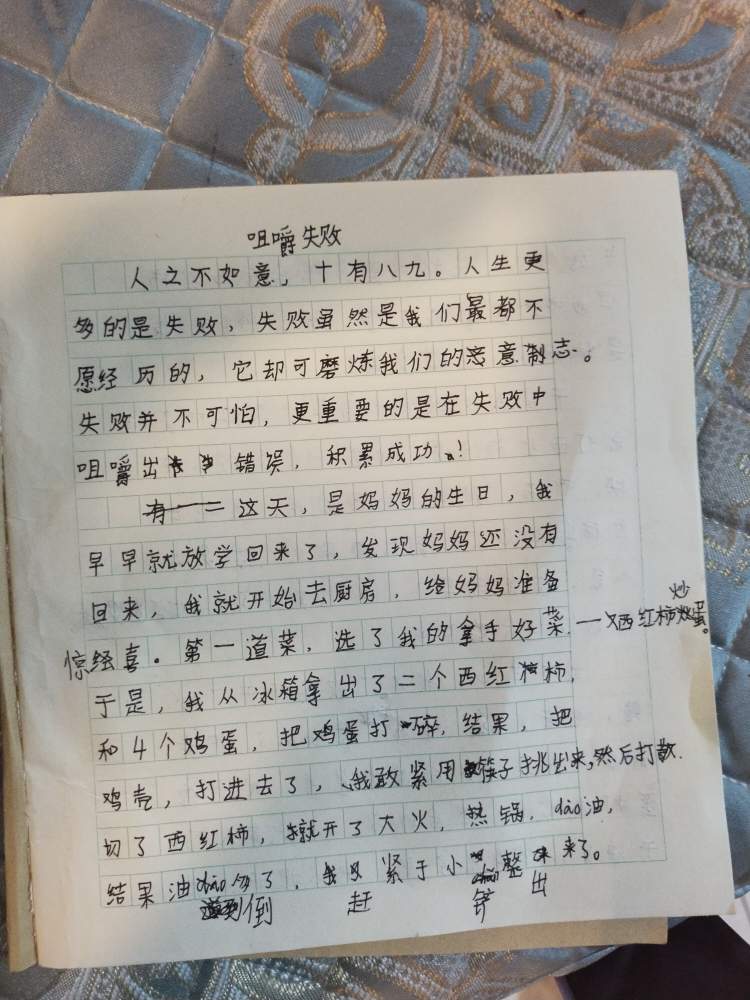 咀嚼失败
人之不如意，十有八九。人生更
多的是失败，失败虽然是我们最都不
愿经历的，它却可磨炼我们的意制志。
失败并不可怕，更重要的是在失败中
咀嚼出错误，积累成功！
有一二这天，是妈妈的生日，我
早早就放学回来了，发现妈妈还没有
回来，我就开始去厨房，给妈妈准备
惊经喜。第一道菜，选了我的拿手好菜.——西红柿炒蛋。
于是，我从冰箱拿出了二个西红柿，
和4个鸡蛋，把鸡蛋打碎，结果，把
鸡壳，打进去了，我敢紧用筷子挑出来,然后打散.
切了西红柿，就开了大火，热锅，dǎo油，
结果油dào多了，我紧于小整来了。
倒 赶 铲 出